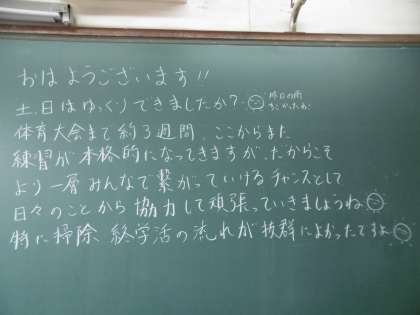 おはようございます!!
土、日はゆっくりできましたか? 昨日の雨
すごかったね
体育大会まで約3週間、ここからまた
練習が本格的になってきますが、だからこそ
より一層みんなで繋がっていけるチャンスとして
日々のことから協力して頑張っていきましょうね
特に掃除、終学活の流れが抜群によかったですよ